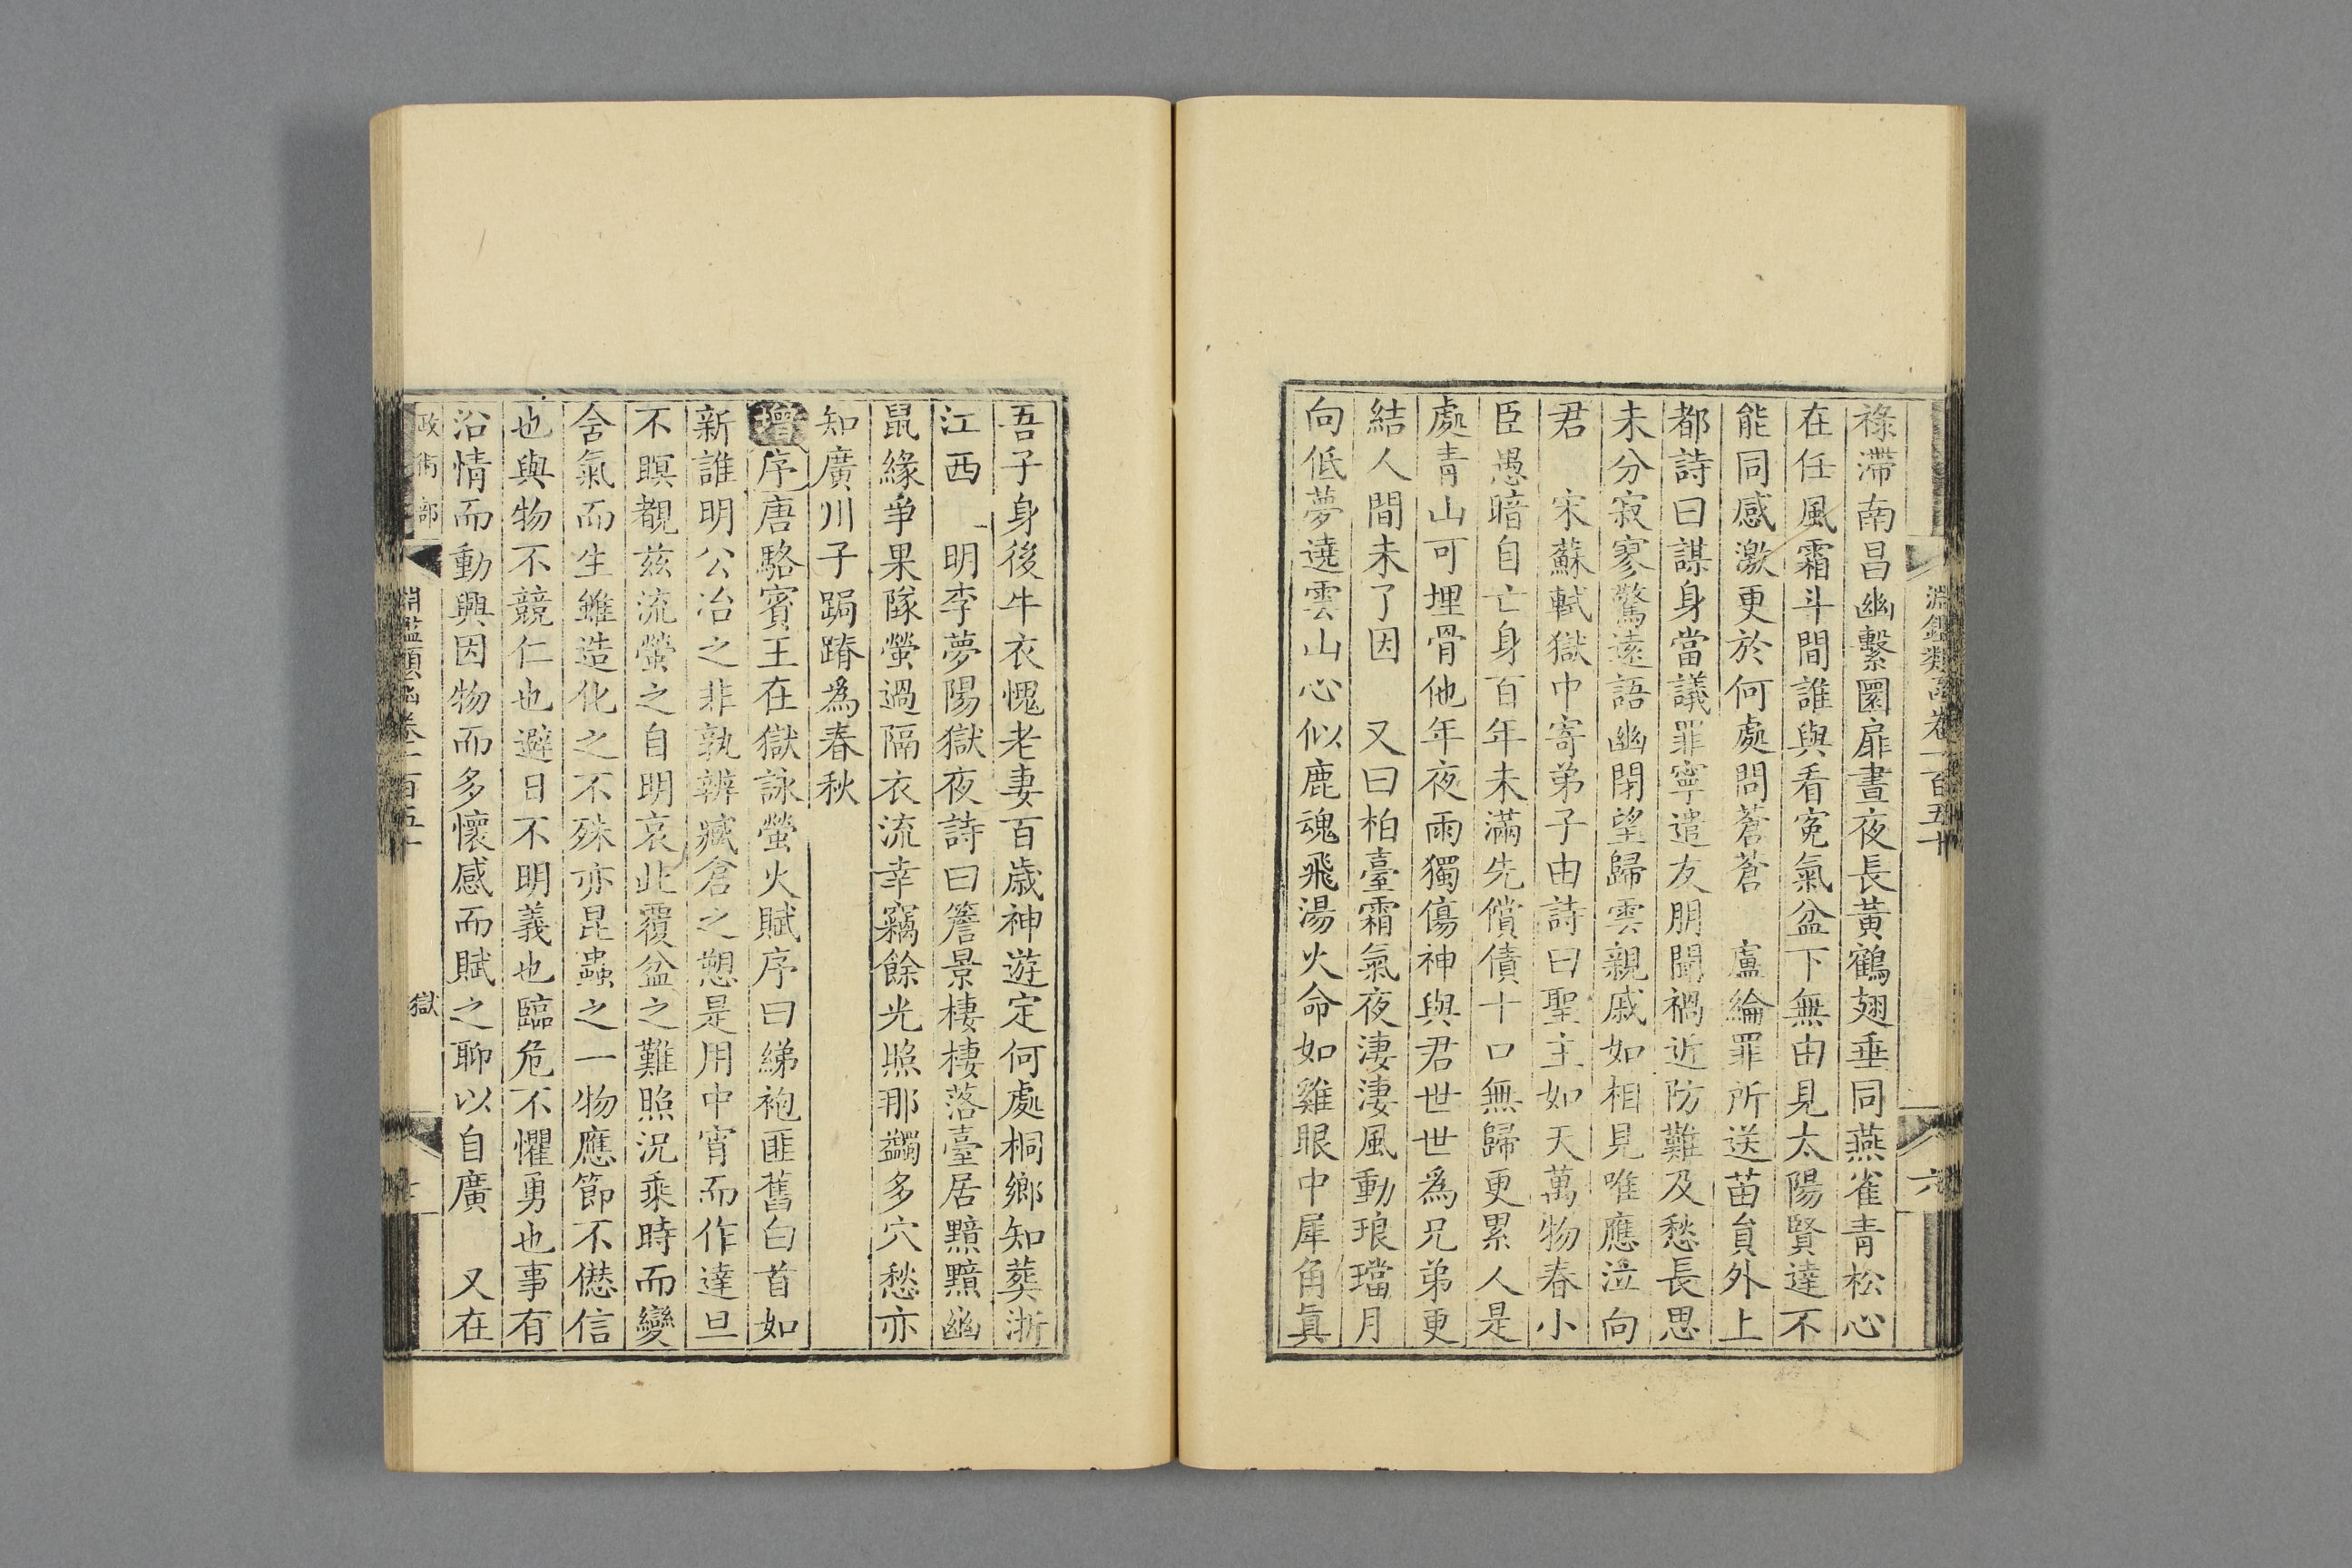 淵鑑類函卷一百五十
六
祿滯南昌幽繫圜扉晝夜長黃鶴翅垂同燕雀青松心
在任風霜斗間誰與看寃氣盆下無由見太陽賢達不
能同感激更於何處問蒼蒼　盧綸罪所送苗員外上
都詩曰謀身當議罪寧遣友朋聞禍近防難及愁長思
未分寂寥驚遠語幽閉望歸雲親戚如相見唯應泣向
君　宋蘇軾獄中寄弟子由詩曰聖主如天萬物春小
臣愚暗自亡身百年未滿先償債十口無歸更累人是
處青山可埋骨他年夜雨獨傷神與君世世為兄弟更
結人間未了因　又曰柏臺霜氣夜淒淒風動琅璫月
向低夢遶雲山心似鹿魂飛湯火命如雞眼中犀角真
吾子身後牛衣愧老妻百歲神遊定何處桐鄉知葬浙
江西　明李夢陽獄夜詩曰簷景棲棲落臺居黯黯幽
鼠緣爭果隊螢過隔衣流幸竊餘光照那蠲多穴愁亦
知廣川子跼蹐為春秋
增序唐駱賓王在獄詠螢火賦序曰綈袍匪舊白首如
新誰明公冶之非孰辨臧倉之愬是用中宵而作達旦
不瞑覩茲流螢之自明哀此覆盆之難照況乘時而變
含氣而生雖造化之不殊亦昆蟲之一物應節不愆信
也與物不競仁也避日不明義也臨危不懼勇也事有
沿情而動興因物而多懷感而賦之聊以自廣　又在
政術部
淵鑑類函卷一百五十
獄